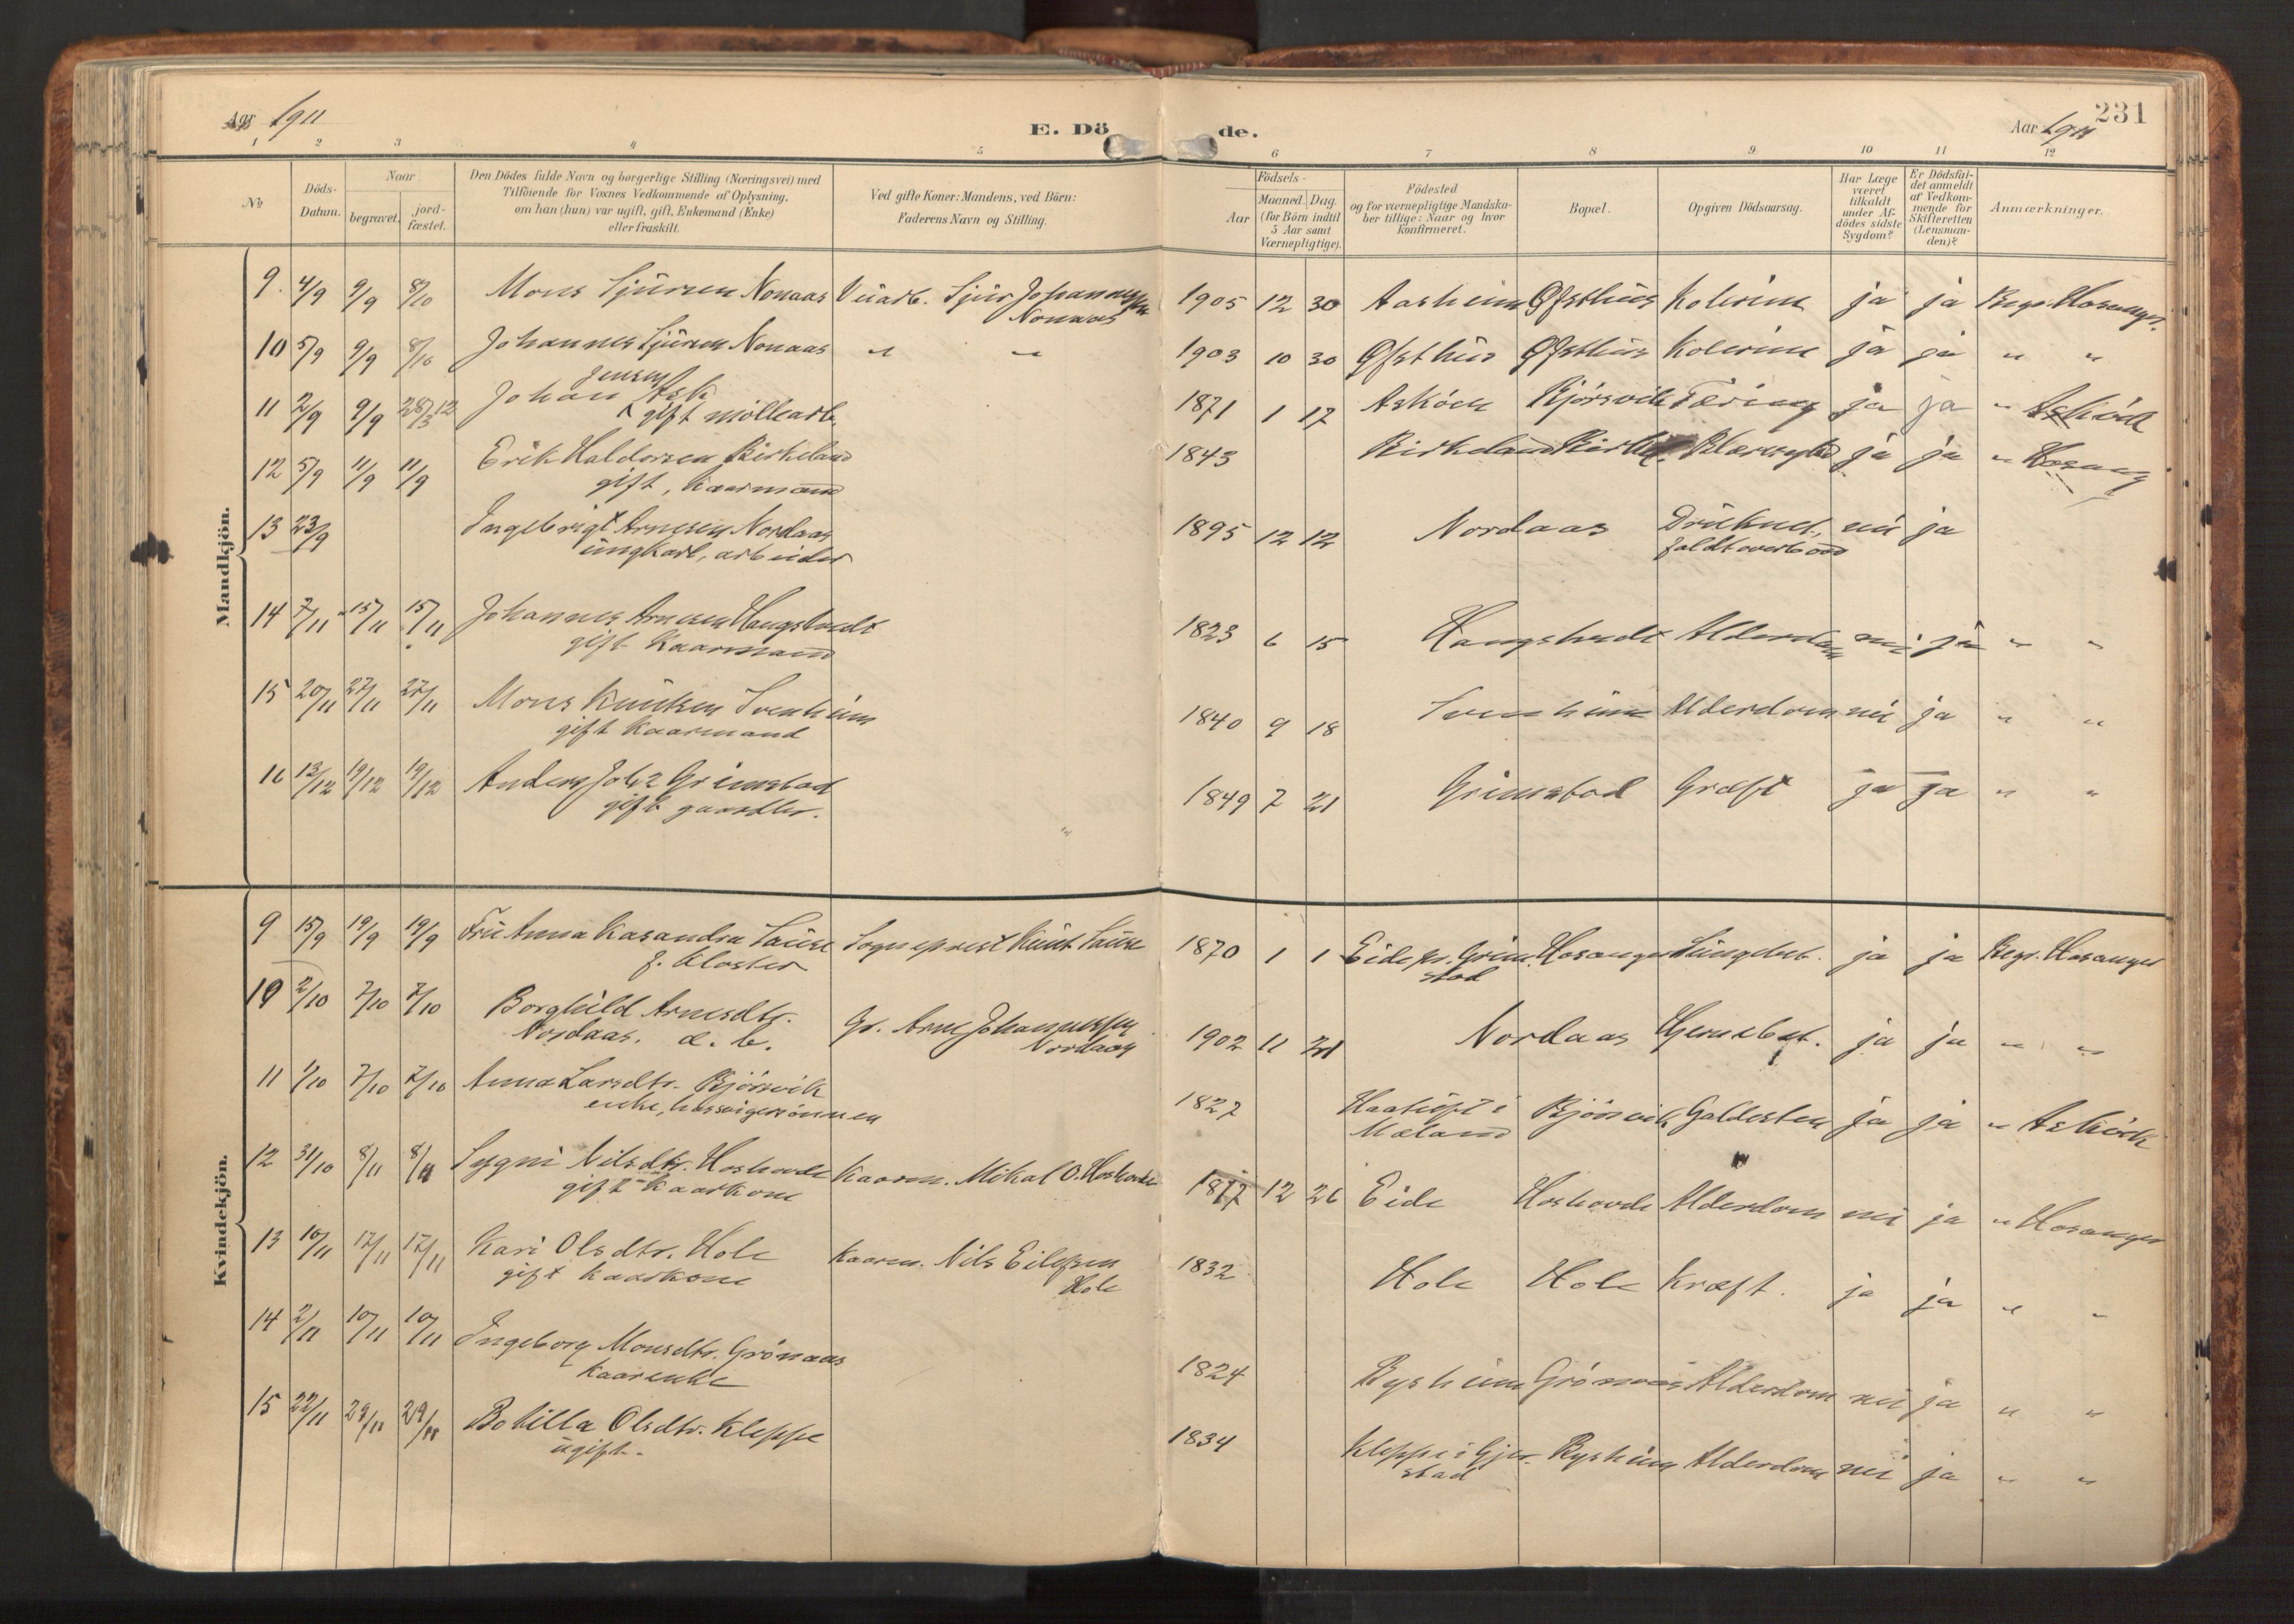 Aar 1911
E. Döde.
Aar 1911
231
1 2 3 4 5 6 7 8 9 10 11 12
No
Döds-Datum.
Naar
begravet.
jord-fæstet.
Den Dödes fulde Navn og borgerlige Stilling (Næringsvei) med
Tilföiende for Voxnes Vedkommende af Oplysning,
om han (hun) var ugift, gift, Enkemand (Enke)
eller fraskilt.
Ved gifte Koner: Mandens, ved Börn:
Faderens Navn og Stilling.
Födsels-
Aar
Maaned. Dag.
(for Börn indtil
5 Aar samt
Værnepligtige).
Födested
og for værnepligtige Mandska-
ber tillige: Naar og hvor
konfirmeret.
Bopæl.
Opgiven Dödsaarsag.
Har Læge
været
tilkaldt
under Af-
dödes sidste
Sygdom?
Er Dödsfal-
det anmeldt
af Vedkom-
mende for
Skifteretten
(Lensman-
den)?
Anmærkninger.
Mandkjön.
9. 4/9 9/9 8/10 Mons Sjursen Nonaas Sjur Johannessen 1905 12 30 Aasheim Øfsthus Kolerine ja ja Begr. Hosanger.
Nonaas
10 5/9 9/9 8/10 Johannes Sjursen Nonaas " " 1903 10 30 Øfsthus Øfsthus Kolerine ja ja " "
Jensen
11 2/9 9/9 28/3 12 Johan Ask 1871 1 17 Asköen Bjørsvik Tæring ja ja "
gift møllearb.
12 5/9 11/9 11/9 Erik Haldorsen Birkeland 1843 Birkeland ja ja "
gift, kaarmand
13 23/9 Ingebrigt Arnesen Nordaas 1895 12 12 Nordaas Druknet, nei ja
ungkarl, arbeider faldt overbord
14 7/11 15/11 15/11 Johannes Arnesen Haugstvedt 1823 6 15 Haugstvedt Alderdom nei ja " "
gift kaarmand
15 20/11 27/11 27/11 Mons Knutsen Svenheim 1840 9 18 Svenheim Alderdom nei ja " "
gift kaarmand
16 13/12 19/12 19/12 Anders Joh. Grimstad 1849 7 21 Grimstad Kræft ja ja " "
gift gaardbr.
Kvindekjön.
9 15/9 19/9 19/9 Fru Anna Kasandra Sogneprest Knut 1870 1 1 Eide pr. Grim- Hosanger Lungebet. ja ja Begr. Hosanger
f. Kloster stad
10 2/10 7/10 7/10 Borghild Arnesdtr. Gr. Arne Johannessen 1902 11 21 Nordaas Hjernebet. ja ja " "
Nordaas. Nordaas
11 1/10 7/10 7/10 Anna Larsdtr. Bjørsvik 1827 i Bjørsvik Galdesten ja ja "
enke, hos svigersønnen Mæland
12 31/10 8/11 8/11 Sygni Nilsdtr. Hoshovde Kaarm. Mikal O. Hoshovde 12 26 Eide Hoshovde Alderdom nei ja " Hosanger
gift kaarkone
13 10/11 17/11 17/11 Kari Olsdtr. Hole Kaarm. Nils Eilefsen 1832 Hole Hole Kræft. ja ja " "
gift kaarkone Hole
14 2/11 10/11 10/11 Ingeborg Monsdtr. Grönaas 1824 Rysheim Grönaas Alderdom nei ja " "
kaarenke
15 22/11 29/11 29/11 Botilla Olsdtr. Kleppe 1834 Kleppe i Gjer- Rysheim Alderdom nei ja " "
ugift. stad